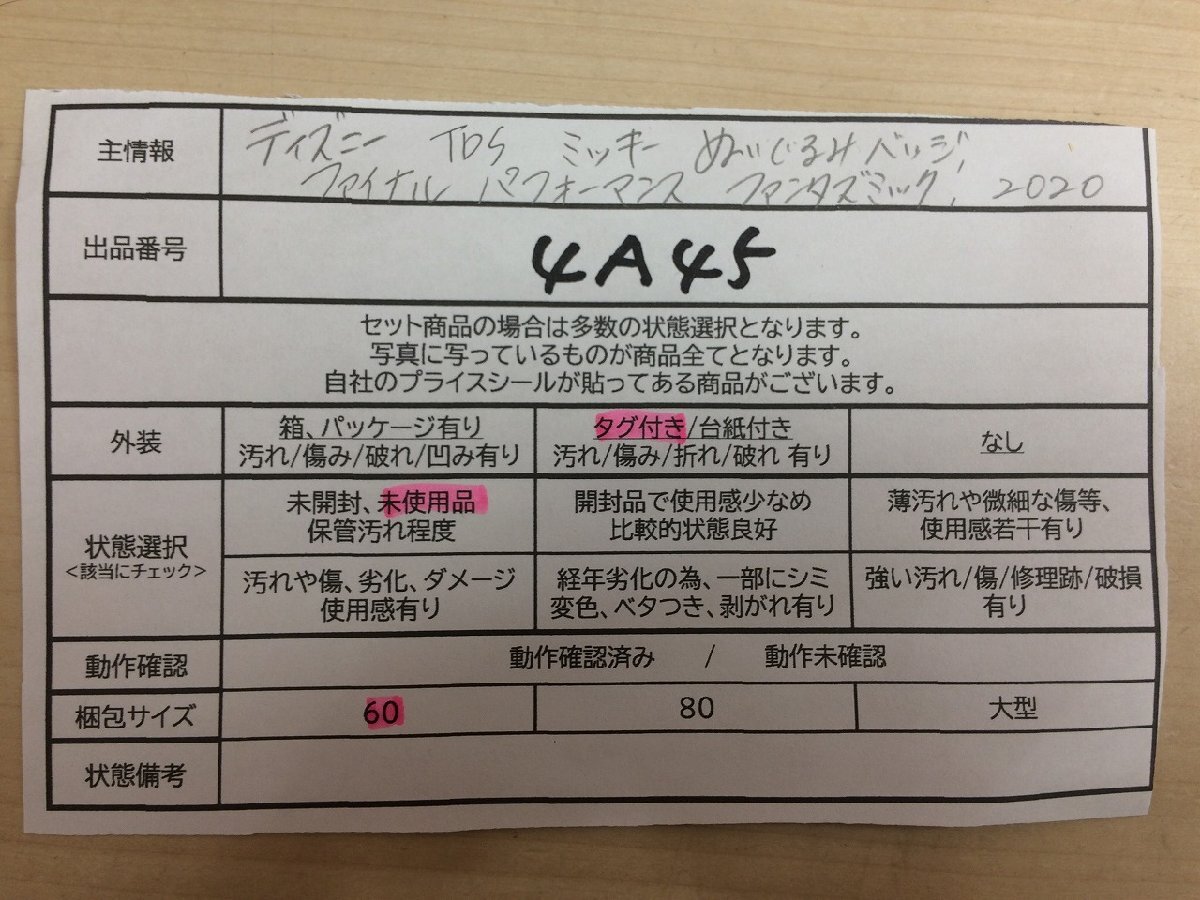 主情報
ディズニー TDS ミッキー ぬいぐるみバッジ
ファイナル パフォーマンス ファンタズミック! 2020
出品番号
4A45
セット商品の場合は多数の状態選択となります。
写真に写っているものが商品全てとなります。
自社のプライスシールが貼ってある商品がございます。
外装
箱、パッケージ有り
汚れ/傷み/破れ/凹み有り
タグ付き/台紙付き
汚れ/傷み/折れ/破れ 有り
なし
状態選択
<該当にチェック>
未開封、未使用品
保管汚れ程度
開封品で使用感少なめ
比較的状態良好
薄汚れや微細な傷等、
使用感若干有り
汚れや傷、劣化、ダメージ
使用感有り
経年劣化の為、一部にシミ
変色、ベタつき、剥がれ有り
強い汚れ/傷/修理跡/破損
有り
動作確認
動作確認済み / 動作未確認
梱包サイズ
60
80
大型
状態備考